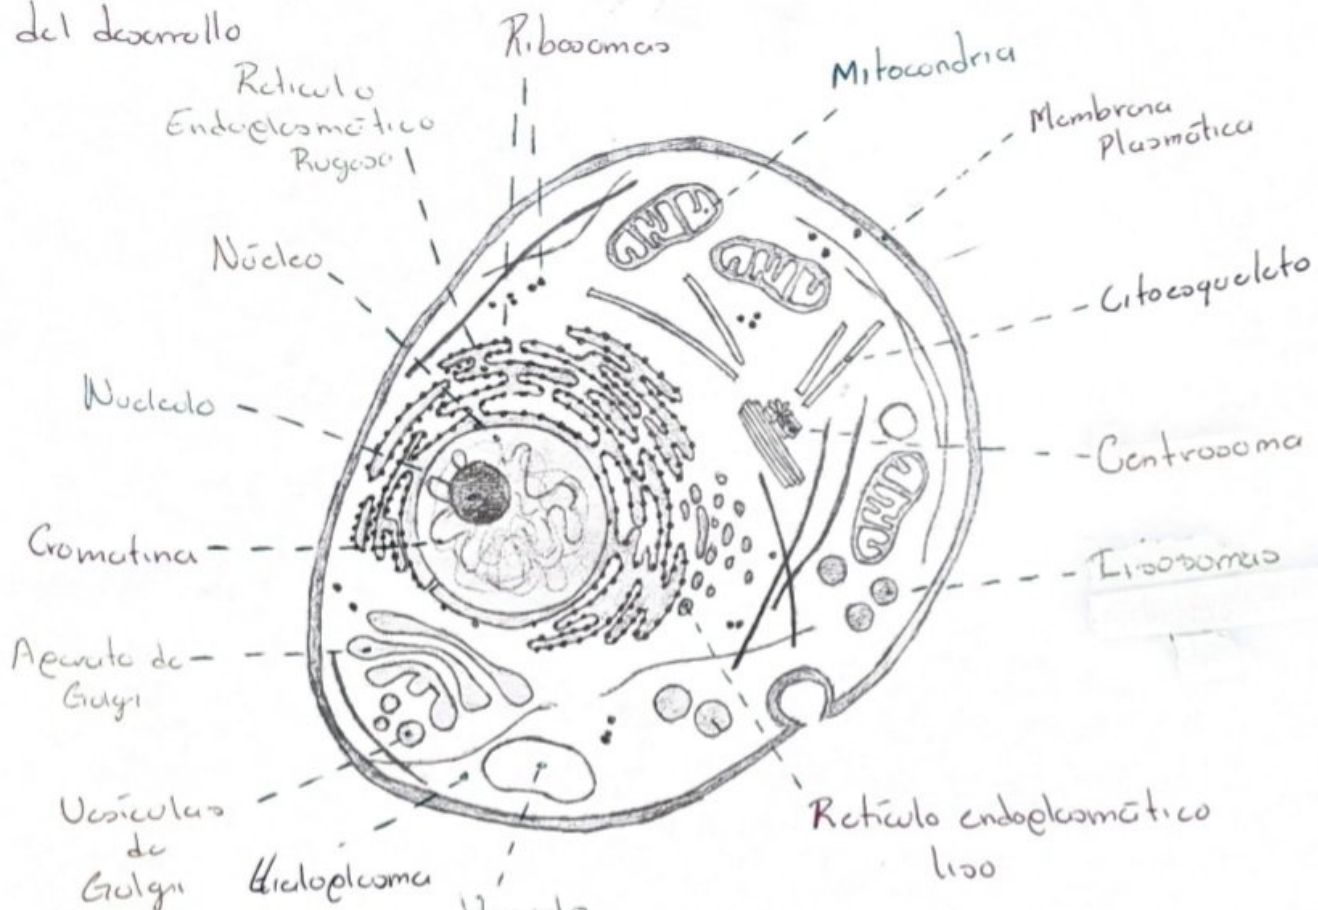 del desarrollo
Ribosomas
Mitocondria
Reticulo
Endoplasmático
Rugoso
Membrana
Plasmática
Núcleo
Citoesqueleto
Nucleolo
Centrosoma
Cromatina
Lisosomas
Aparato de
Golgi
Vesículas
de
Golgi
Hialoplasma
Retículo endoplasmático
liso